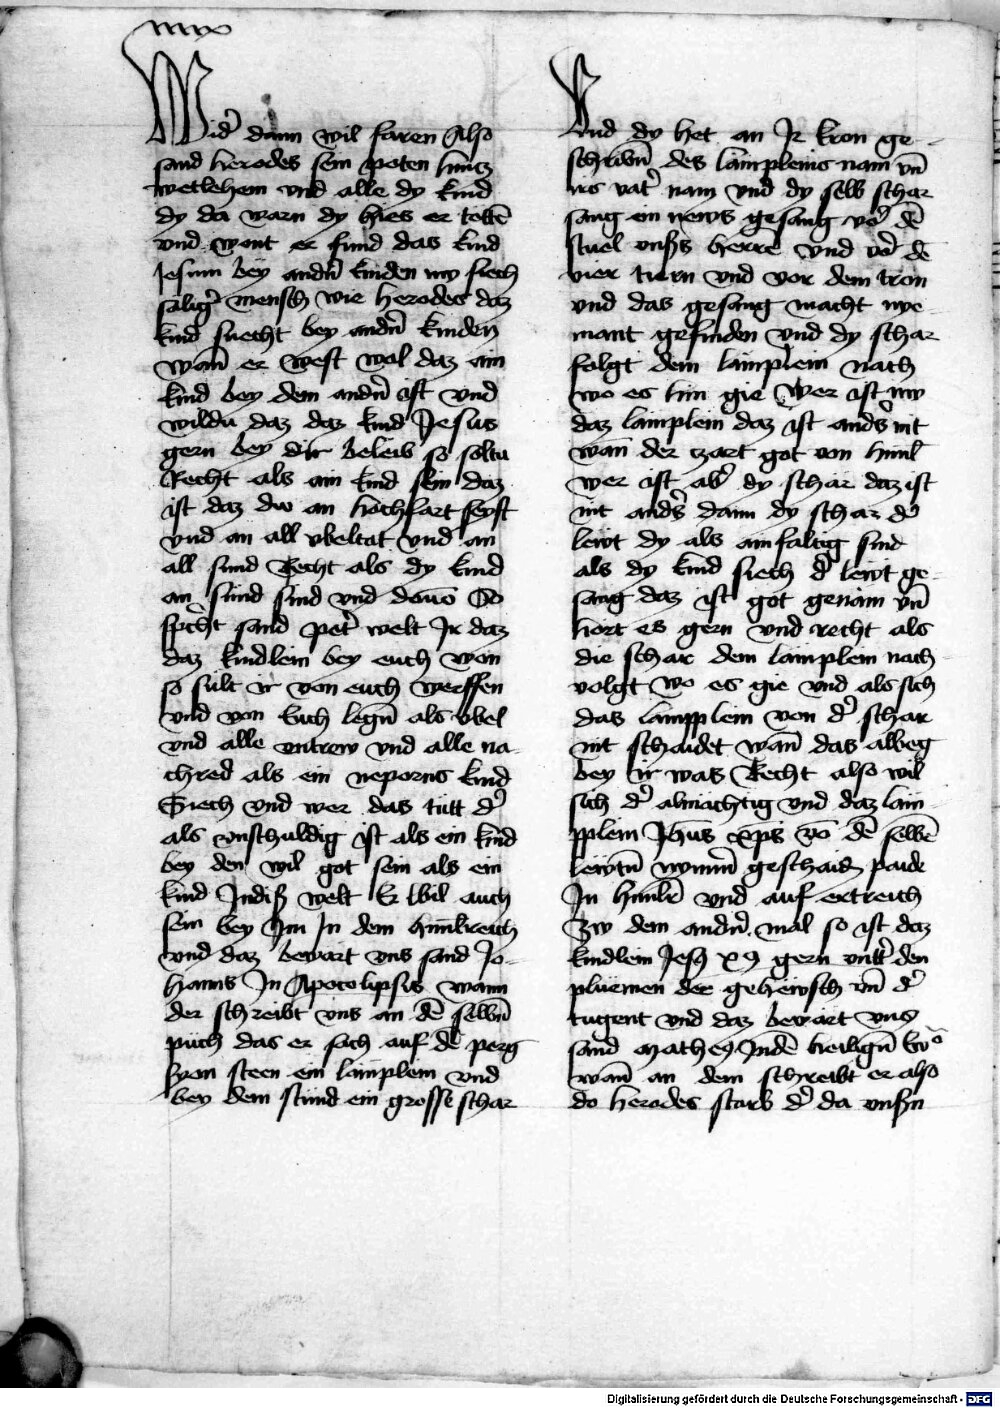 Wid' dann wil faren Also
sand herodes sein poten hincz
wetlehem vnd alle dy kind
dy da warn dy hies er totē
vnd want er fund das kind
Jesum bey andn̄ kinden nw siech
salig' mensch wie herodes daz
kind suecht bey andn̄ kinden
wan̄ er west wol daz ain
kind bey dem andn̄ ist vnd
wildu daz daz kind Jesus
gern bey dir beleib so soltu
Recht als ain kind sein daz
ist daz dw an hochfart seyst
vnd an all vbeltat vnd an
all sund Recht als dy kind
an sünd sind vnd dauō So
spricht sand pet' welt Ir daz
daz kindlein bey euch won
so sült ir von euch werffen
vnd von Euch legn̄ als vbel
vnd alle vntrew vnd alle na-
chred als ein neporns kind
Siech vnd wer das tütt d'
als vnschuldig ist als ein kind
bey den wil got sein als ein
kind Indiß welt Er wil auch
sein bey Im In dem himlreich
vnd daz bewart vns sand Jo-
hanns In Apocolipsis wann
der schreibt vns an dē selbn̄
püch das er sich auf dē perg
syon steen ein lämplein vnd
bey dem stünd ein grosse schar
Vnd dy het an Ir kron ge-
schribn̄ des lämpleins nam vn̄
irs vat' nam vnd dy selb schar
sang ein news gesang vor dē
stuel vnsers herrē vnd vor dē
vier tiern vnd vor dem tron
vnd das gesang macht nye-
mant gefinden vnd dy schar
folgt dem lämplein nach
wo es hin gie Wer ist nw
daz lämplein daz ist anders nit
wan̄ der zart got von himl
wer ist ab' dy schar daz ist
nit anders dann dy schar d'
lewt dy als ainfaltig sind
als dy kind siech d' lewt ge-
sang daz ist got genam vn̄
hort es gern vnd recht als
die schar dem lämplein nach
volgt wo es gie vnd als sich
das lampplein von d' schar
nit schaidet wan̄ das albeg
bey ir was Recht also wil
sich d' almächtig vnd daz läm-
pplein Jhūs xp̄s vō dē selbē
lewtn̄ nymm̄ geschaidn̄ paide
In himlr̄ vnd auf ertreich
Zw dem andn̄ mal so ist daz
kindlein Jesq xq gern vntt' den
plüemen der gehewsch vn̄ d'
tugent vnd daz bewärt vns
sand Matheq Inde heilign̄ Ewo
wan̄ an dem schreibt er also
do herodes starb d' da vnsn̄
Digitalisierung gefördert durch die Deutsche Forschungsgemeinschaft - DFG